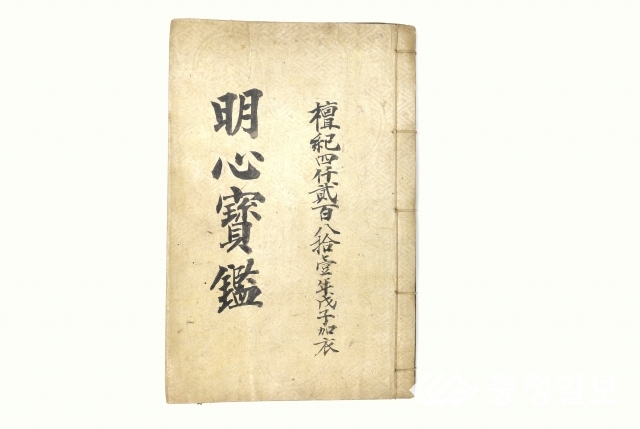 檀紀四仟貳百八拾壹年戊子加衣
明心寶鑑
충청일보